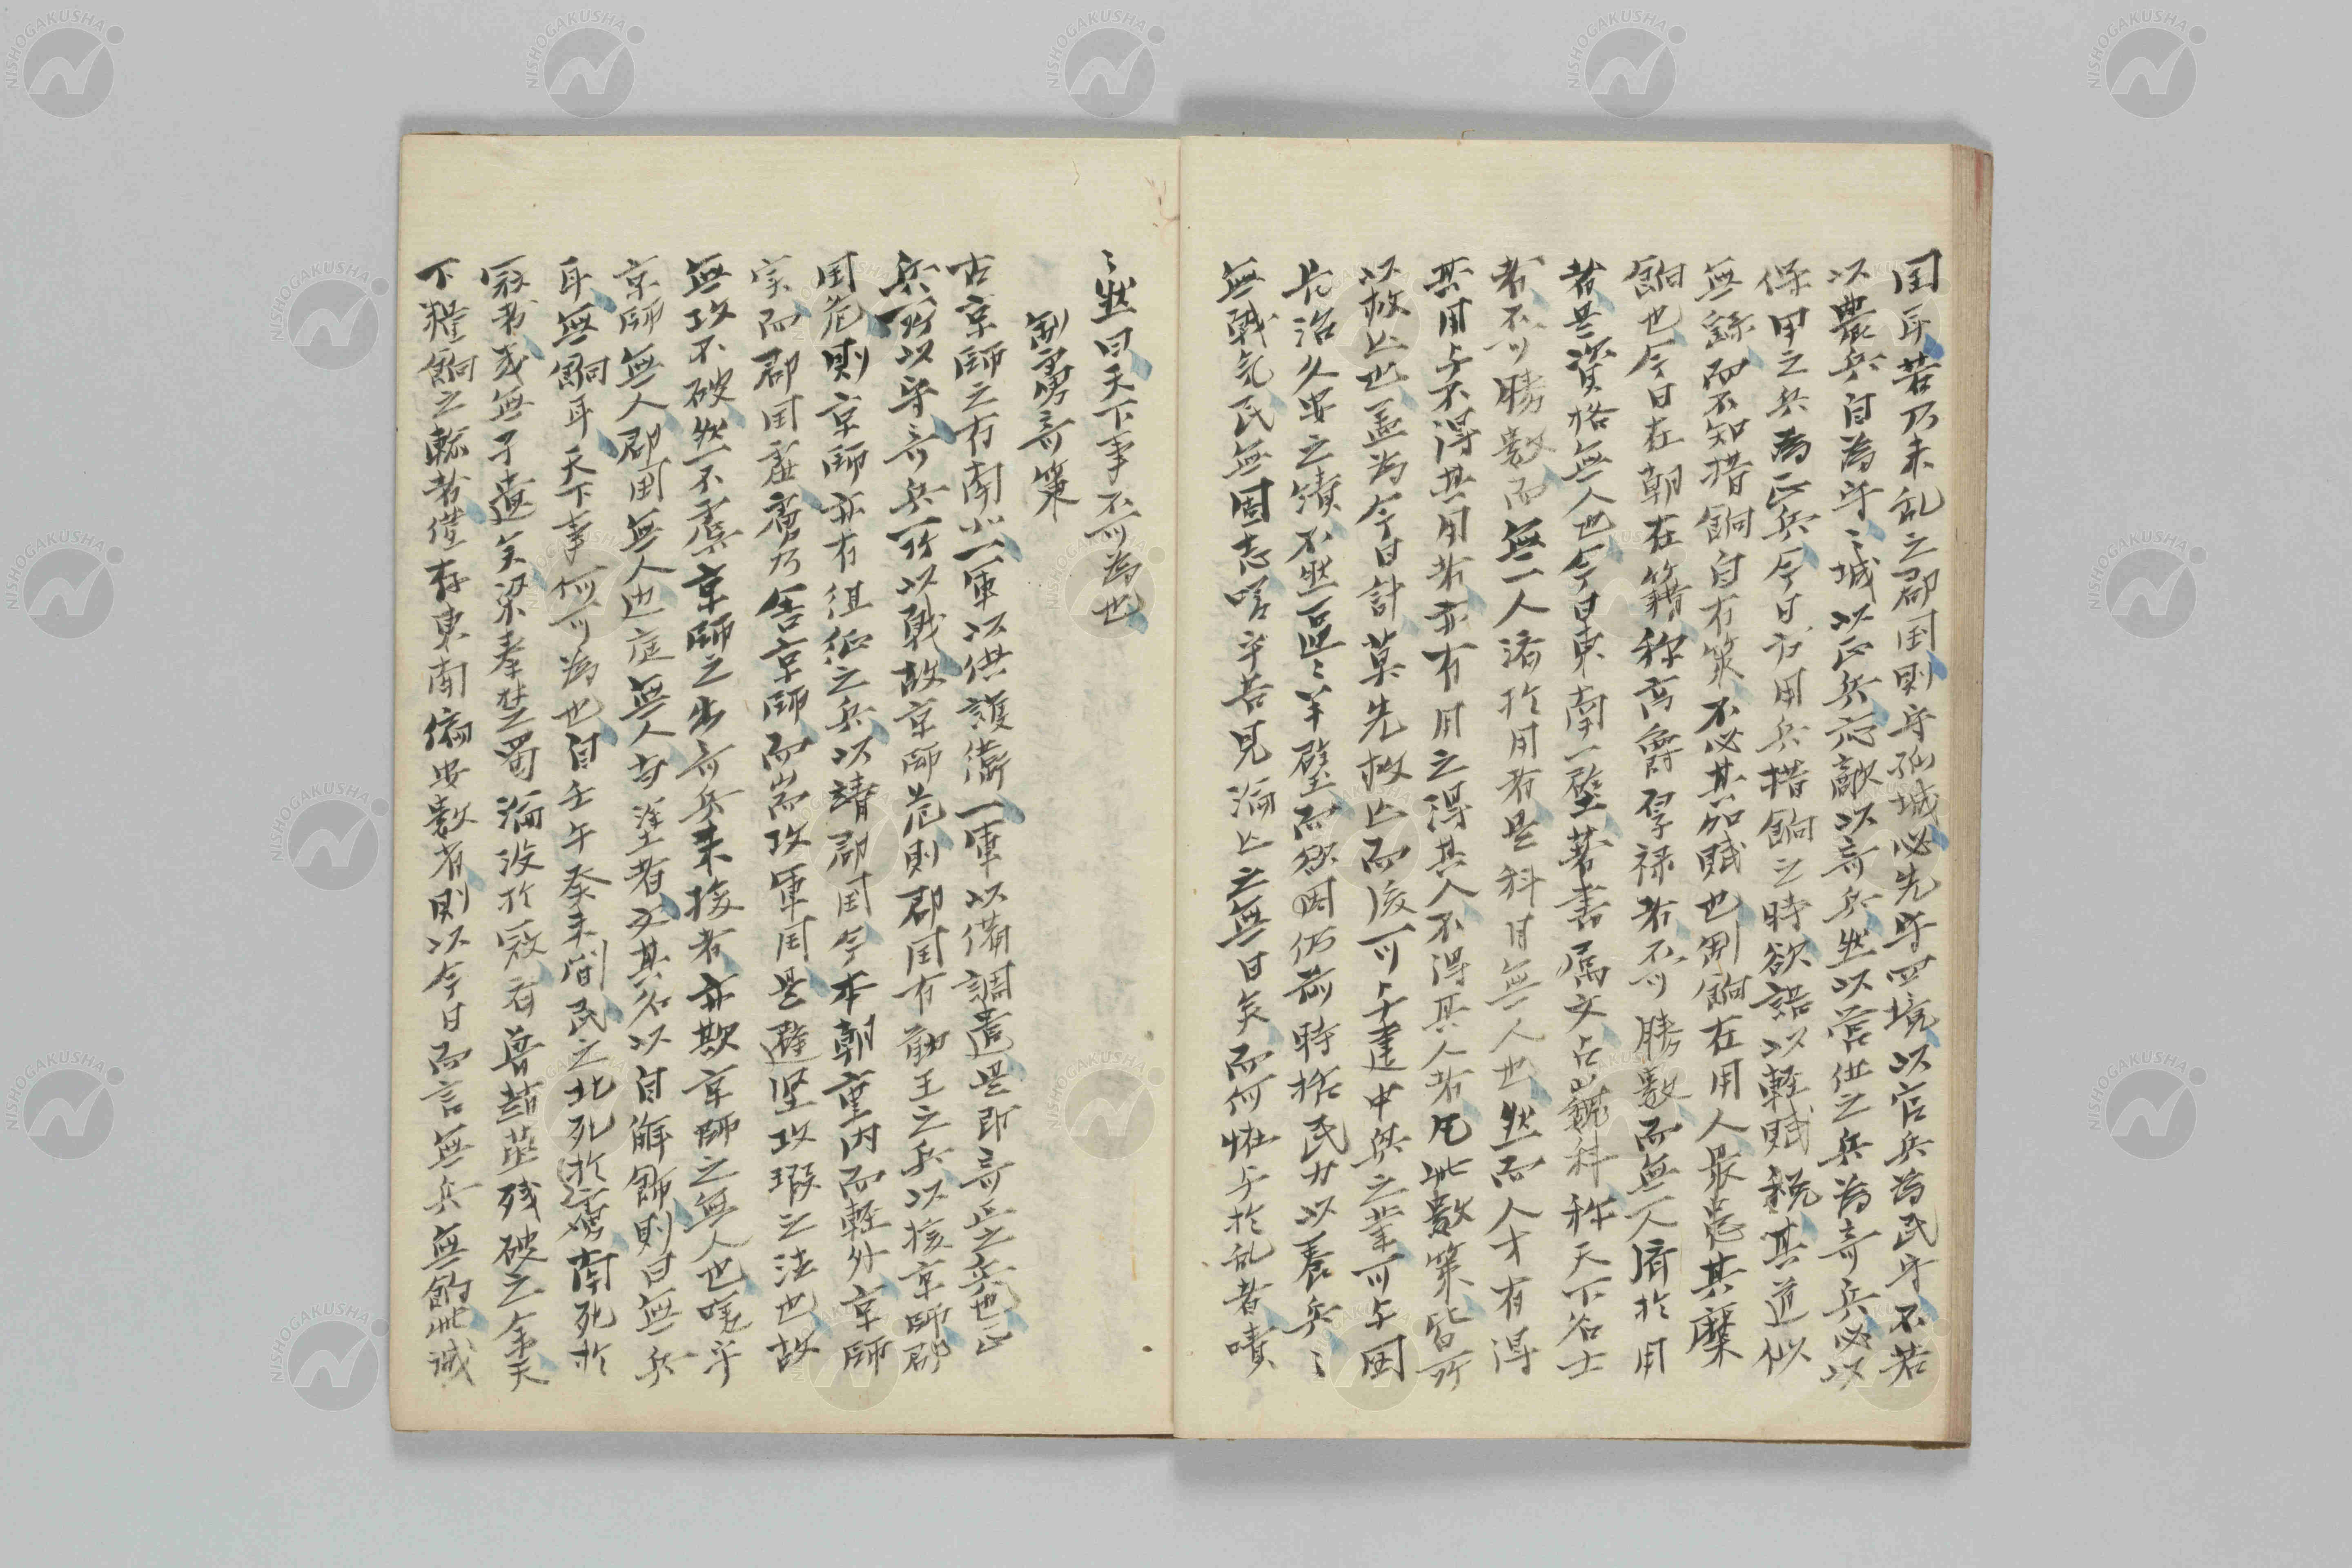 国耳若乃未乱之郡国則守孤城必先守四境以官兵為民守不若
以農兵自為守〻城以正兵応敵以奇兵然以営伍之兵為奇兵必以
保甲之兵為正兵今日方用兵措餉之時欲語以軽賦税其道似
無謀而不知措餉自有策不必其加賦也制餉在用人最急其糜
餉也今日在朝在籍称高爵厚禄者不可勝数而無一人済於用
者是資格無人也今日東南一壁著書属文占巍科称天下名士
者不可勝数而無一人済於用者是科目無人也然而人才有得
其用与不得其用者亦有用之得其人不得其人者凡此数策皆所
以救亡也蓋為今日計莫先救亡而後可与建中興之業可与図
長治久安之績不然区〻半壁而欲因仍前時括民力以養兵〻
無戦気民無固志嗟乎吾見淪亡之無日矣而何怪与於乱者嘖
〻然曰天下事不可為也
制虜奇策
古京師之有南北一軍以供護衛一軍以備調遣是即奇正之兵也正
兵所以守奇兵所以戦故京師危則郡国有勤王之兵以援京師郡
国危則京師亦有徂征之兵以靖郡国今本朝重内而軽外京師
実而郡国虚虜乃舎京師而耑攻軍国是避堅攻瑕之法也故
無攻不破然不虞京師之出奇兵来援者亦欺京師之無人也嗟乎
京師無人郡国無人辺庭無人古望者又其名以自解飾則曰無兵
耳無餉耳天下事何可為也自壬午癸未間民之北死於虜南死於
寇者或無孑遺矣梁秦楚蜀淪没於寇有魯趙並残破之余夫
下糧餉之輸者僅存東南偏安数省則以今日而言無兵無餉此誠